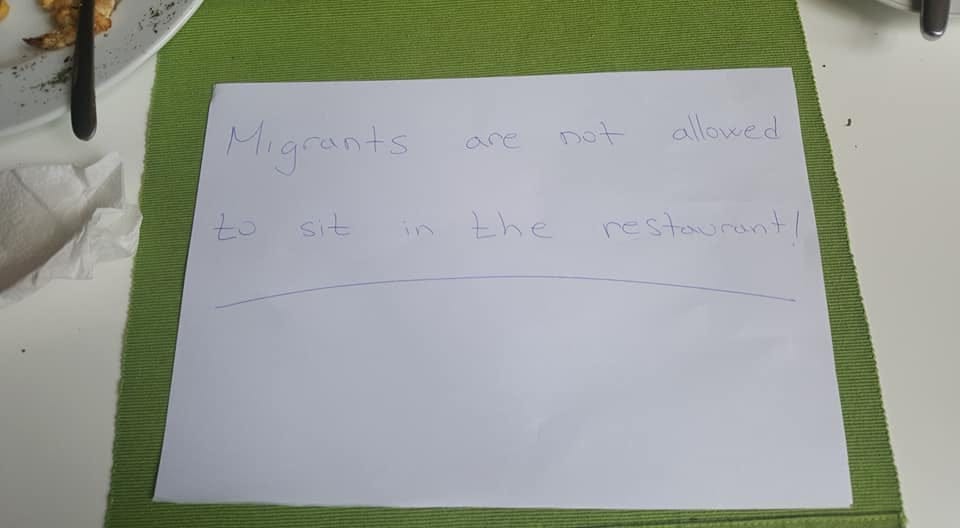 Migrants are not allowed
to sit in the restaurant!